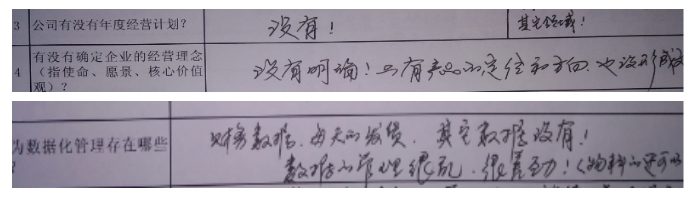 3 公司有没有年度经营计划? 没有! 其它领域!
有没有确定企业的经营理念
4 (指使命、愿景、核心价值 没有明确!只有产品的定位和方向.也没形成
观)?
为数据化管理存在哪些 财务数据、每天的发货、其它数据没有!
数据的管理很乱,很差劲!(物料的还可以